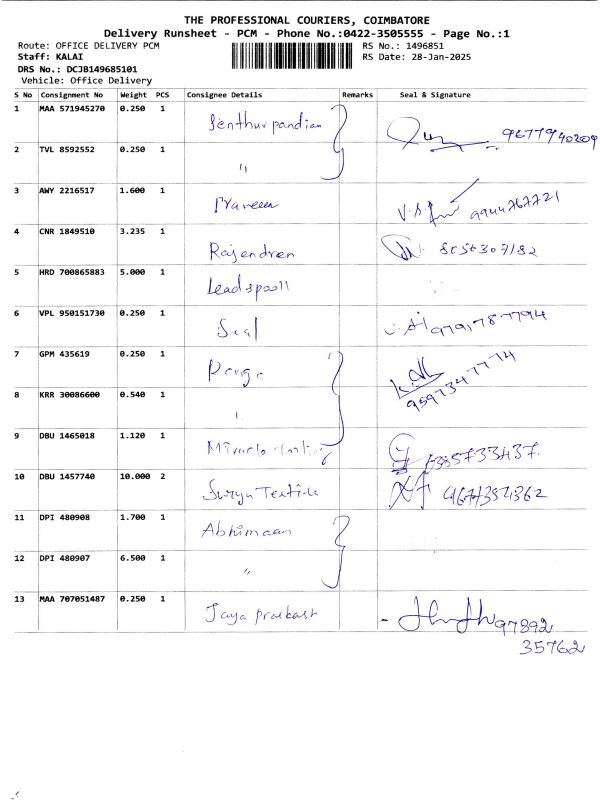 THE PROFESSIONAL COURIERS, COIMBATORE
Delivery Runsheet - PCM - Phone No.:0422-3505555 - Page No.:1
Route: OFFICE DELIVERY PCM RS No.: 1496851
Staff: KALAI RS Date: 28-Jan-2025
DRS No.: DCJB149685101
Vehicle: Office Delivery
S No Consignment No Weight PCS Consignee Details Remarks Seal & Signature
1 MAA 571945270 0.250 1 Senthur pandian 9677940209
2 TVL 8592552 0.250 1 "
3 AWY 2216517 1.600 1 Praveen 9944767721
4 CNR 1849510 3.235 1 Rajendren 8056307182
5 HRD 700865883 5.000 1 Leadspooll
6 VPL 950151730 0.250 1 Seal 9791787794
7 GPM 435619 0.250 1 9597347774
8 KRR 30086600 0.540 1
9 DBU 1465018 1.120 1 Miracle
10 DBU 1457740 10.000 2 Surya Textile
11 DPI 480908 1.700 1 Abhimaan
12 DPI 480907 6.500 1 "
13 MAA 707051487 0.250 1 Jaya prakash 97892
35762